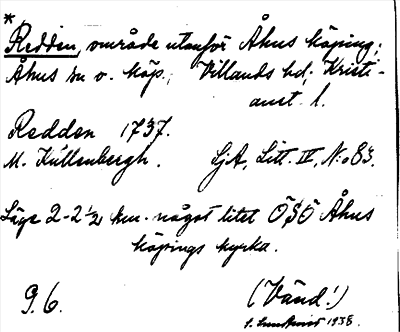 *
Redden, område utanför Åhus köping;
Åhus sn o. köp., Villands hd; Kristi-
anst. l.
Redden 1737.
M. Kullenbergh. LjA, Litt. IV, N:o 83.
Läge 2-2½ km. något litet ÖSÖ Åhus
köpings kyrka.
9.6. (Vänd!)
1938.